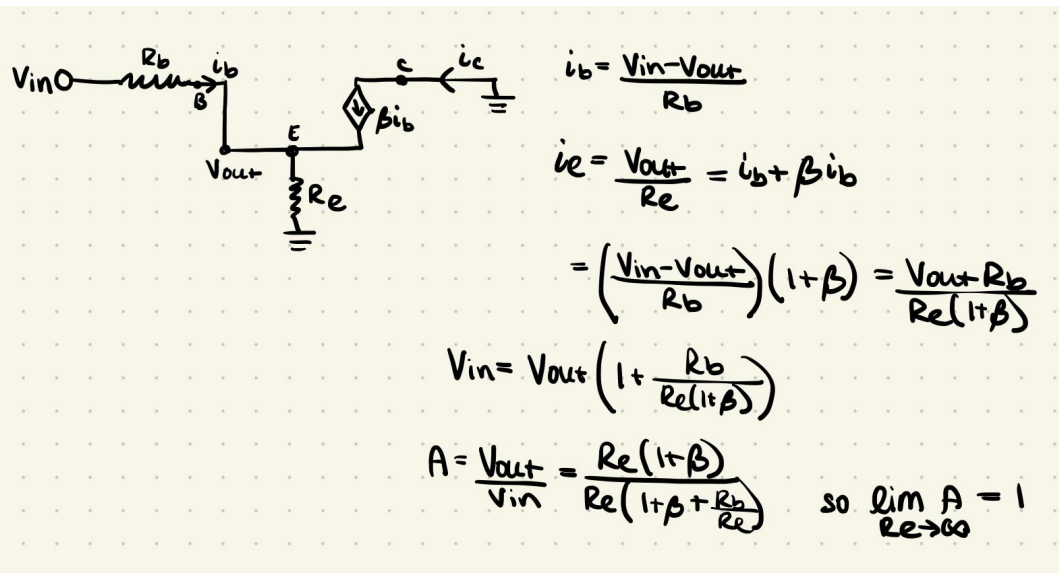 Vin Rb ib B C ic
βib
E
Vout
Re
ib = Vin-Vout / Rb
ie = Vout / Re = ib + βib
= (Vin-Vout / Rb)(1+β) = Vout Rb / Re(1+β)
Vin = Vout(1 + Rb / Re(1+β))
A = Vout / Vin = Re(1+β) / Re(1+β+Rb/Re) so lim A = 1
Re→∞